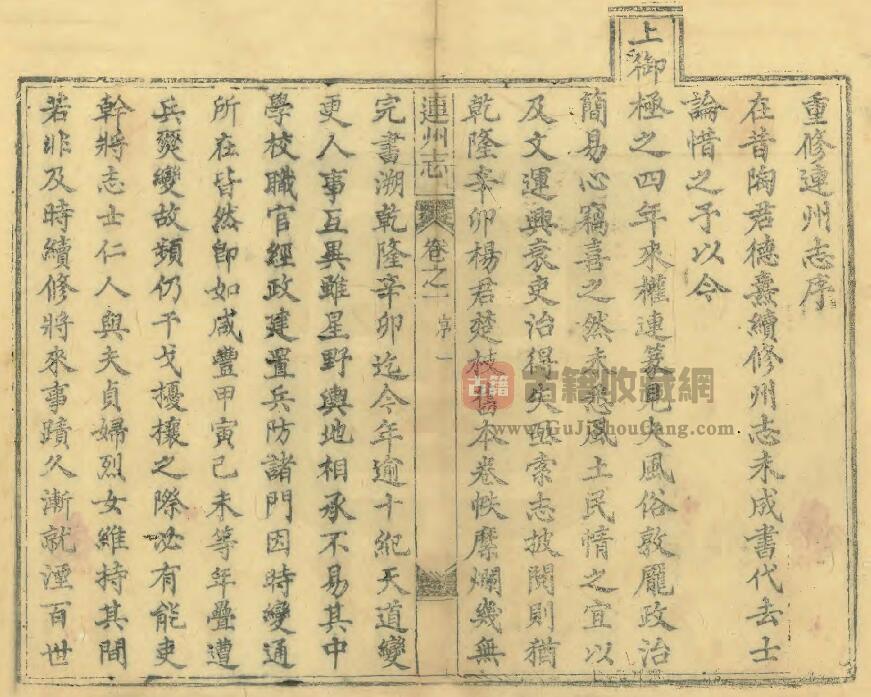 重修連州志序
在昔陶君德燾續修州志未成書代去士
論惜之予以今
上御極之四年來權連篆見夫風俗敦龐政治
簡易心竊喜之然未悉風土民情之宜以
及文運興衰吏治得失亟索志披閱則猶
乾隆辛卯楊君楚枝舊本卷帙糜爛幾無
連州志
卷之一
序
一
完書溯乾隆辛卯迄今年逾十紀天道變
更人事互異雖星野輿地相承不易其中
學校職官經政建置兵防諸門因時變通
所在皆然即如咸豐甲寅己未等年疊遭
兵燹變故頻仍干戈擾攘之際必有能吏
幹將志士仁人與夫貞婦烈女維持其間
若非及時續修將來事蹟久漸就湮百世
古籍
古籍收藏網
www.GuJiShouCang.com